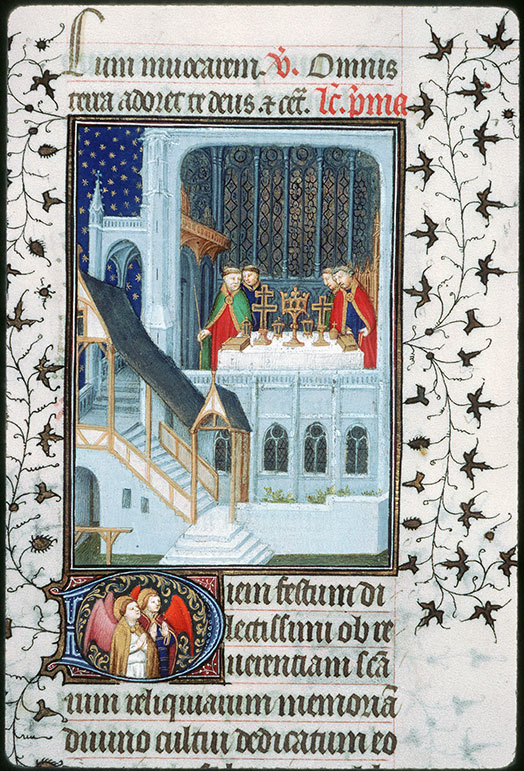 Cum invocarem. V. Omnis
terra adoret te deus. & cet̄. lc̄. p̄ma
Diem festum di
lectissimi ob re
uerentiam scā
rum reliquiarum memoriā
diuino cultui dedicatum eo